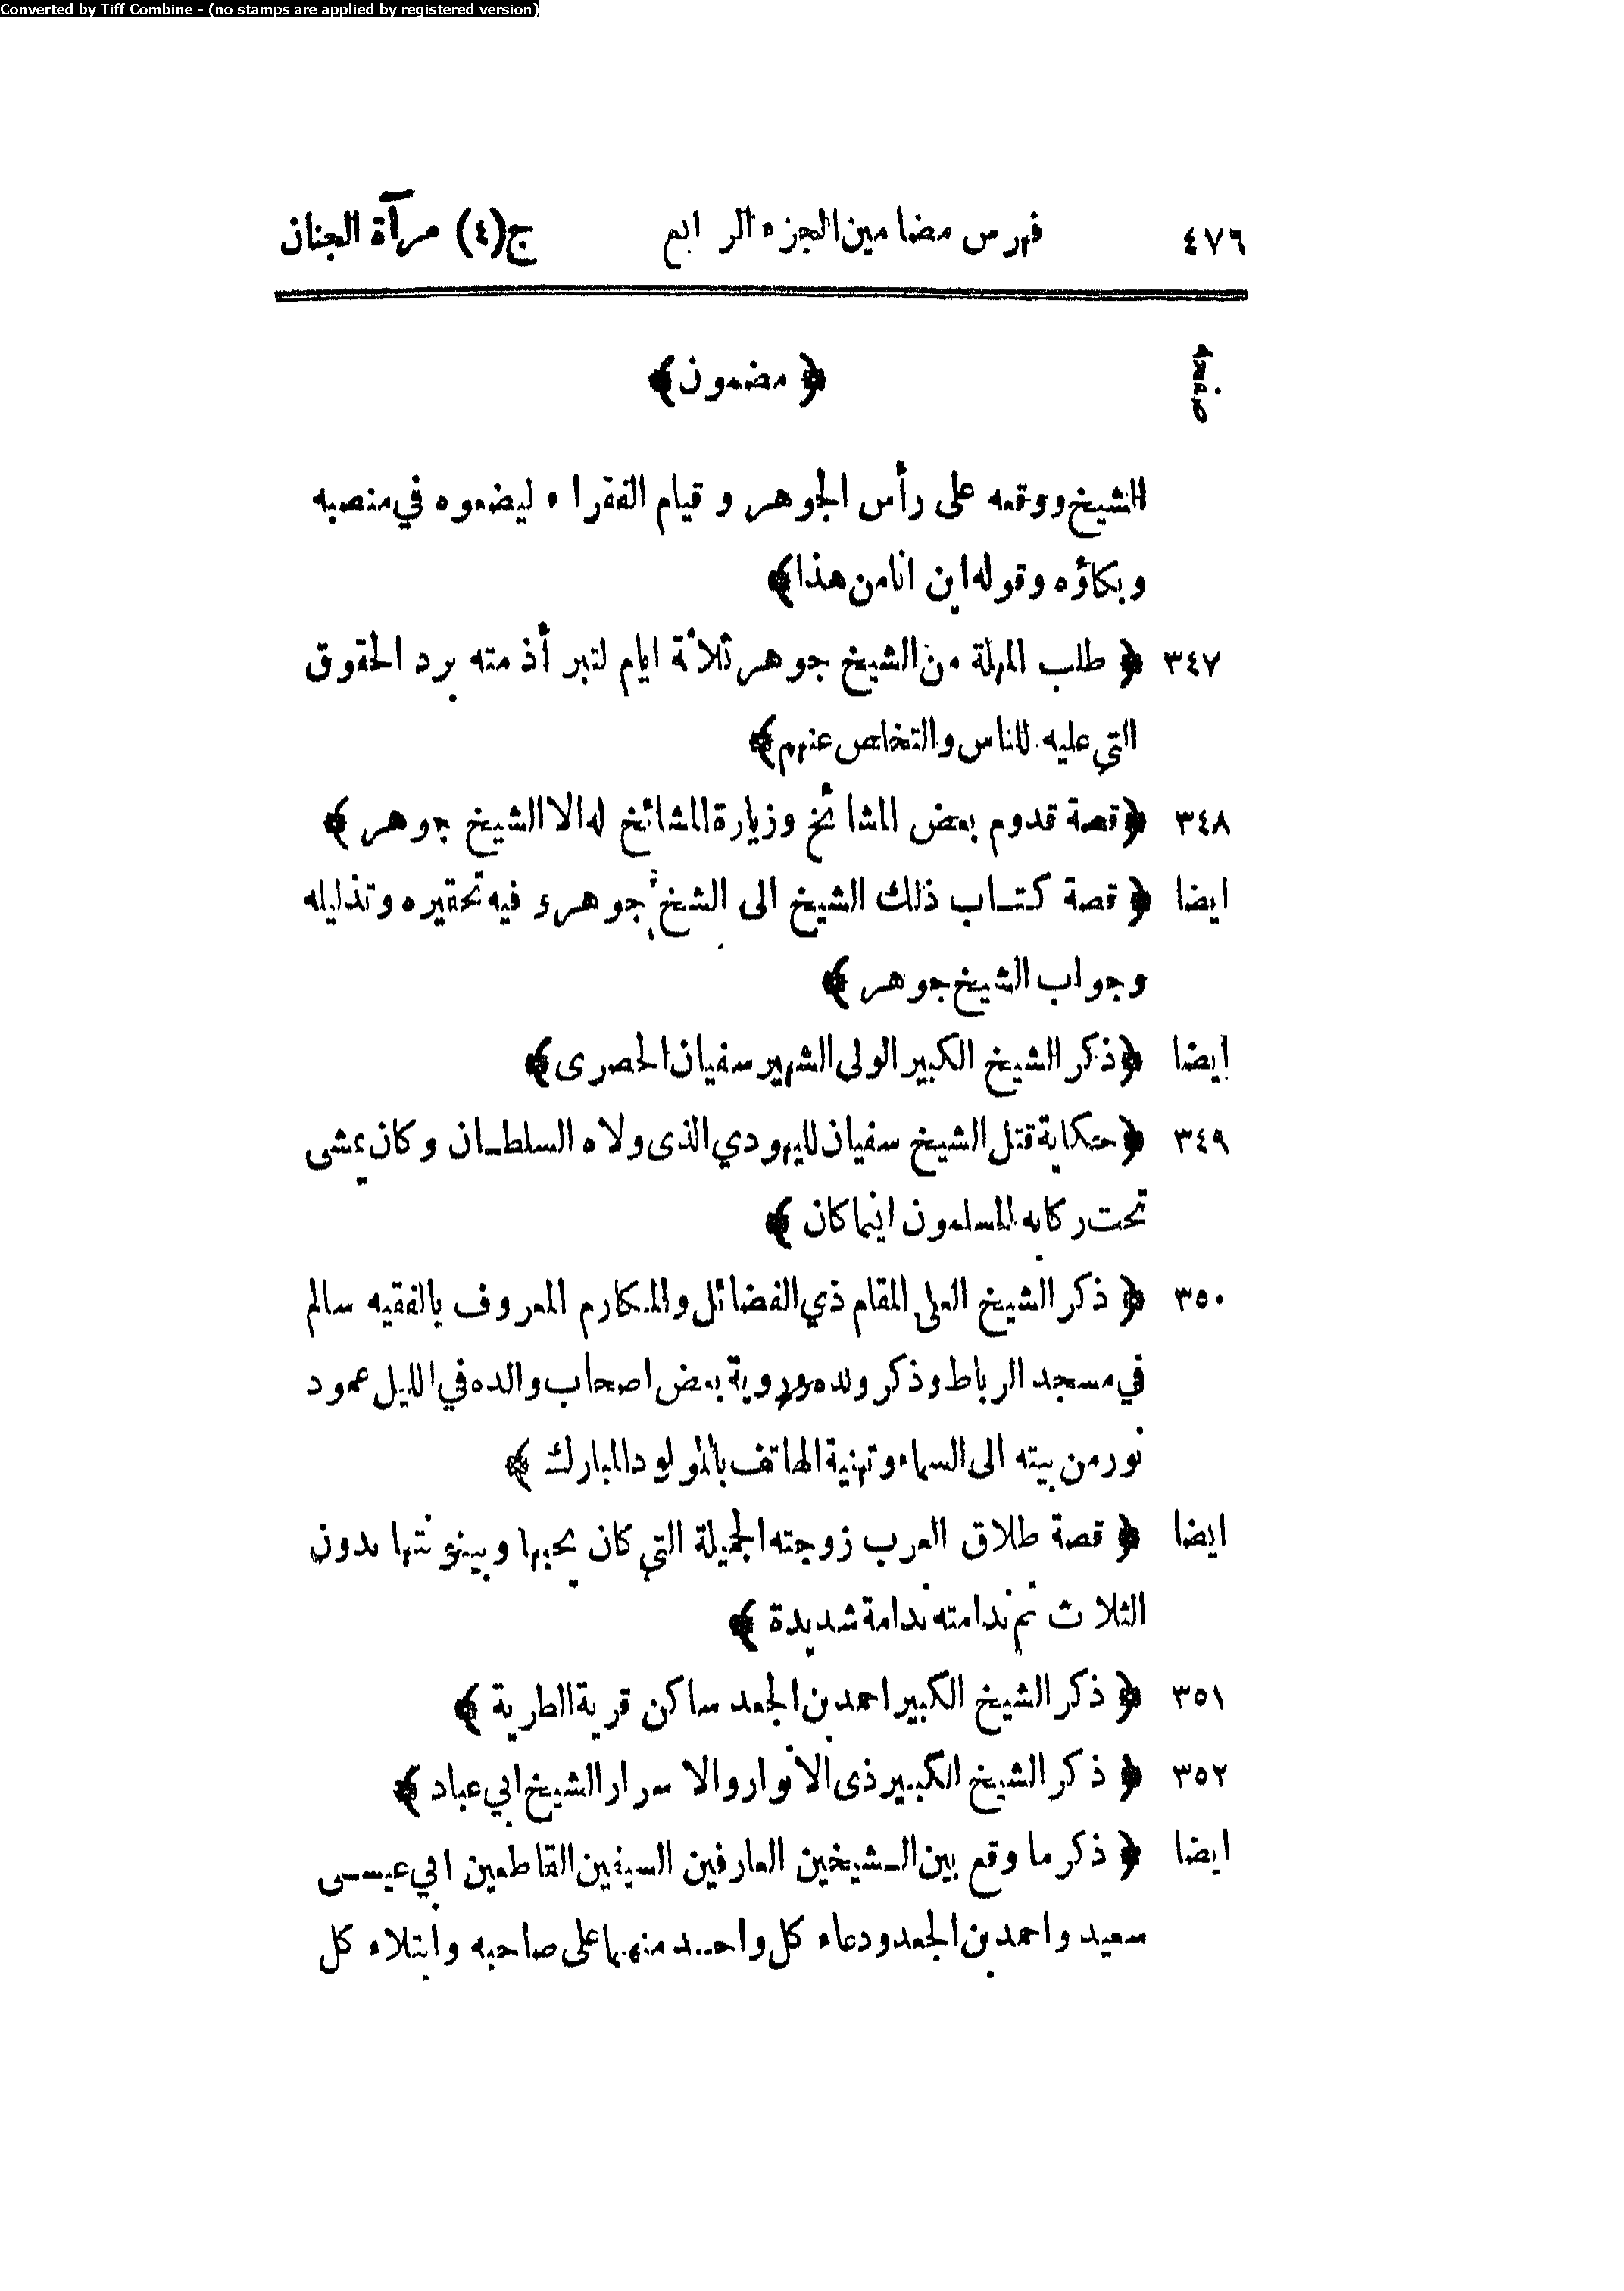 Converted by Tiff Combine - (no stamps are applied by registered version)
٤٧٦ فهرس مضامين الجزء الرابع ج(٤) مرآة الجنان
صفحه ﴿ مضمون ﴾
الشيخ ووقعه على رأس الجوهر و قيام الفقراء ليضعوه في منصبه
وبكاؤه وقوله اين انا من هذا﴾
٣٤٧ ﴿ طلب المهلة من الشيخ جوهر ثلاثة ايام لتبرأ ذمته برد الحقوق
التي عليه للناس والتخلص عنهم﴾
٣٤٨ ﴿قصة قدوم بعض المشائخ وزيارة المشائخ له الا الشيخ جوهر ﴾
ايضا ﴿ قصة كتاب ذلك الشيخ الى الشخ جوهرء فيه تحقيره وتذليله
وجواب الشيخ جوهر ﴾
ايضا ﴿ذكر الشيخ الكبير الولى الشهير سفيان الحصرى﴾
٣٤٩ ﴿حكاية قتل الشيخ سفيان لليهودي الذى ولاه السلطان وكان يمشى
تحت ركابه المسلمون اينما كان ﴾
٣٥٠ ﴿ ذكر الشيخ العلى المقام ذي الفضائل والمكارم المعروف بالفقيه سالم
في مسجد الرباط وذكر ولده وروية بعض اصحاب والده في الليل عمود
نور من بيته الى السماء وتهنية الهاتف بالمولود المبارك ﴾
ايضا ﴿ قصة طلاق العرب زوجته الجميلة التي كان يحبها وبينونتها بدون
الثلاث ثم ندامته ندامة شديدة ﴾
٣٥١ ﴿ ذكر الشيخ الكبير احمد بن الجعد ساكن قرية الطرية ﴾
٣٥٢ ﴿ ذكر الشيخ الكبير ذى الانوار والاسرار الشيخ ابي عباد ﴾
ايضا ﴿ ذكر ما وقع بين الشيخين العارفين السيفين القاطعين ابي عيسى
سعيد واحمد بن الجعد ودعاء كل واحد منهما على صاحبه وابتلاء كل